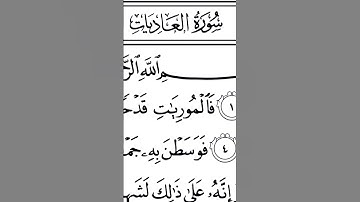 سُورَةُ العَادِيَاتِ
ـمِ ٱللَّهِ ٱلرَّحْـ
١ فَٱلْمُورِيَٰتِ قَدْحـ
٤ فَوَسَطْنَ بِهِۦ جَمْـ
إِنَّهُۥ عَلَىٰ ذَٰلِكَ لَشَهِيـ